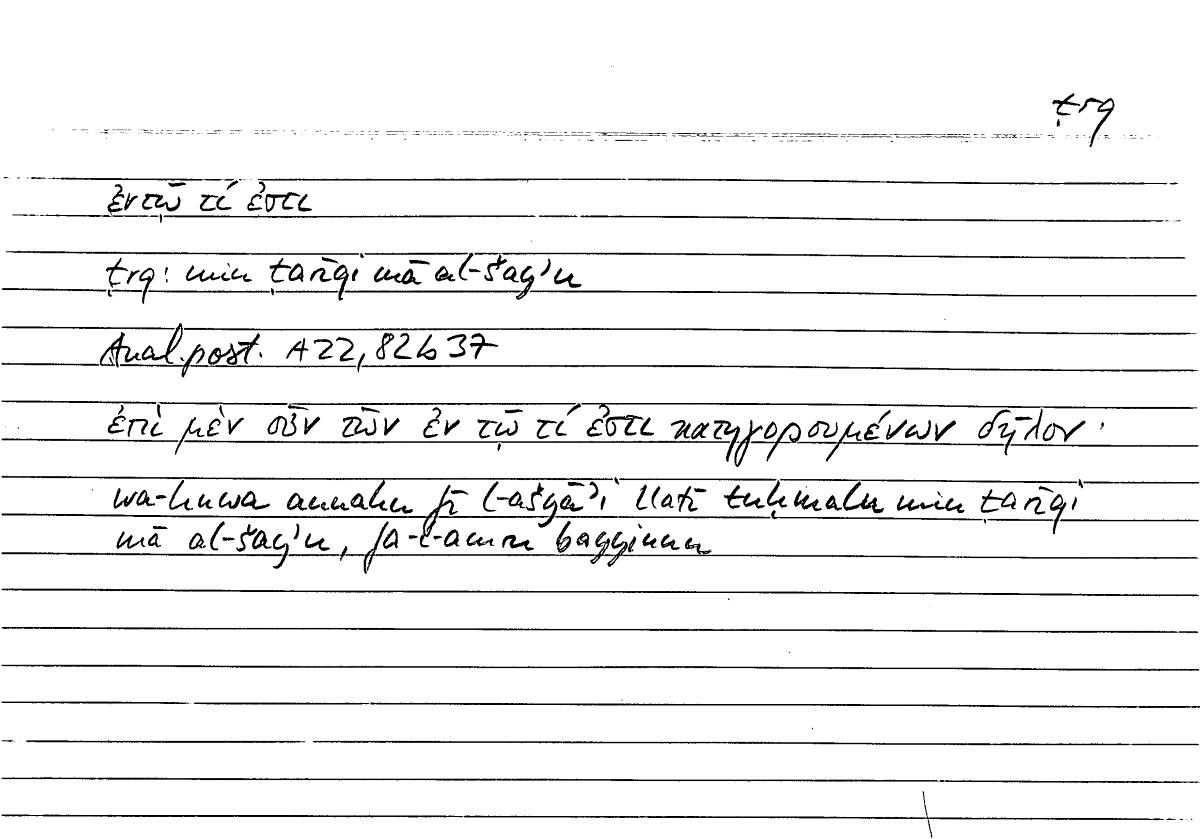 ṭrq
ἐν τῷ τί ἐστι
ṭrq: min ṭarīqi mā al-šayʾu
Anal. post. A22, 82b37
ἐπὶ μὲν οὖν τῶν ἐν τῷ τί ἐστι κατηγορουμένων δῆλον·
wa-huwa annahu fī l-ašyāʾi llatī tuḥmalu min ṭarīqi
mā al-šayʾu, fa-l-amru bayyinun